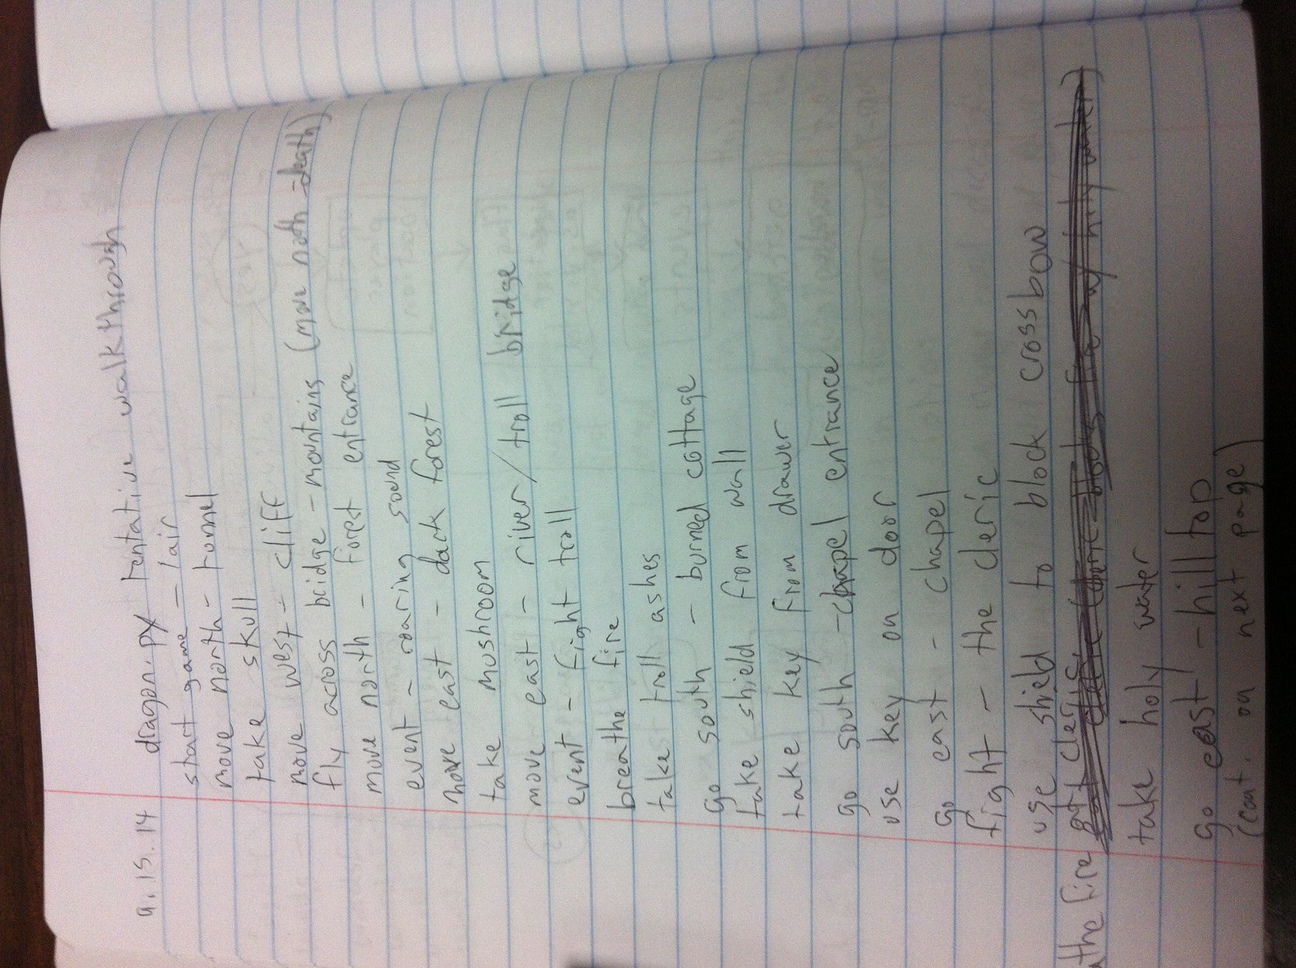 9.15.14 dragon.py tentative walkthrough
start game - lair
move north - tunnel
take skull
move west - cliff
fly across bridge - mountains (move noth = death)
move north - forest entrance
event - roaring sound
move east - dark forest
take mushroom
move east - river/troll bridge
event - fight troll
breathe fire
take troll ashes
go south - burned cottage
take shield from wall
take key from drawer
go south - chapel entrance
use key on door
go east - chapel
fight - the cleric
use shield to block crossbow
the fire at cleric.
eat cleric (cleric blocks fire w/ holy water)
take holy water
go east - hilltop
(cont. on next page)